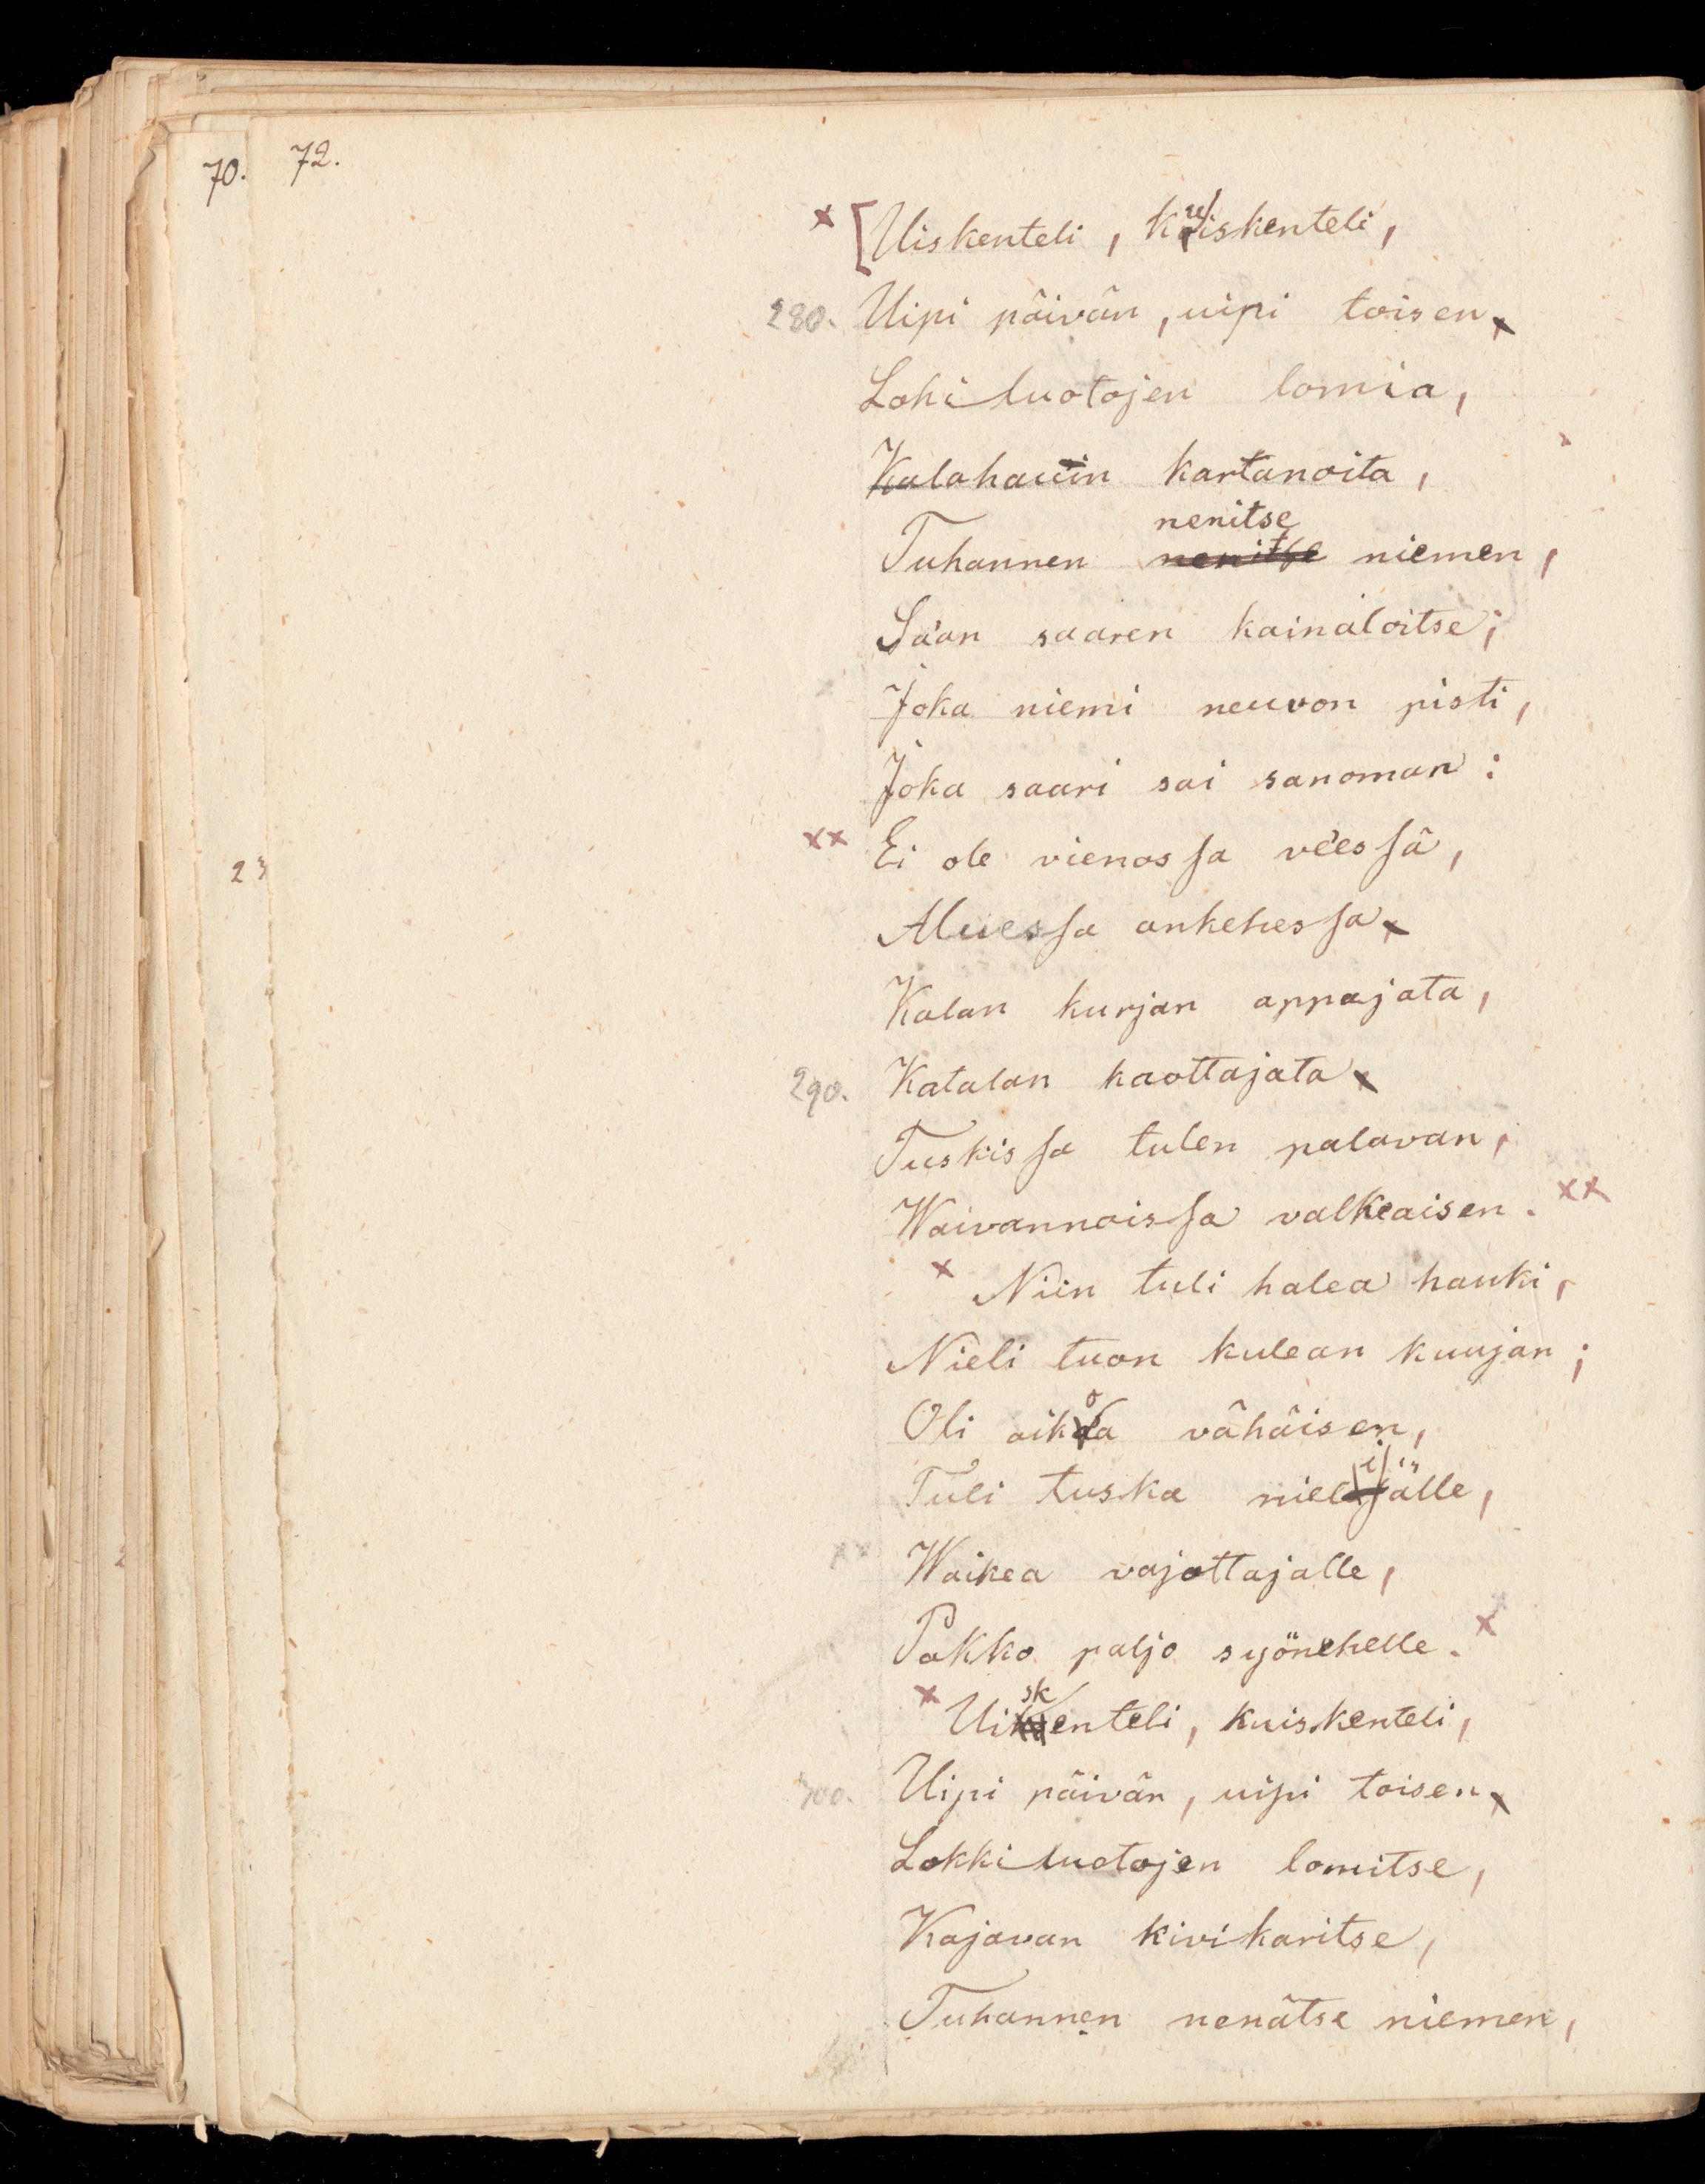 70. 72.
× [Uiskenteli, kuiskenteli,
280. Uipi päivän, uipi toisen,
Lohiluotojen lomia,
Kalahauin kartanoita,
nenitse
Tuhannen nenitse niemen,
Sa'an saaren kainaloitse;
Joka niemi neuvon pisti,
Joka saari sai sanoman:
×× Ei ole vienossa ve'essä,
23
Aluessa ankehessa,
Kalan kurjan appajata,
290. Katalan kaottajata
Tuskissa tulen palavan,
Waivannoissa valkeaisen. ××
× Niin tuli halea hauki,
Nieli tuon kulean kuujan;
Oli aikoa vähäisen,
Tuli tuska nieliälle,
×× Waikea vajottajalle,
Pakko paljo syönehelle. ×
× Uiskenteli, kuiskenteli,
300. Uipi päivän, uipi toisen,
Lokkiluotojen lomitse,
Kajavan kivikaritse,
Tuhannen nenätse niemen,